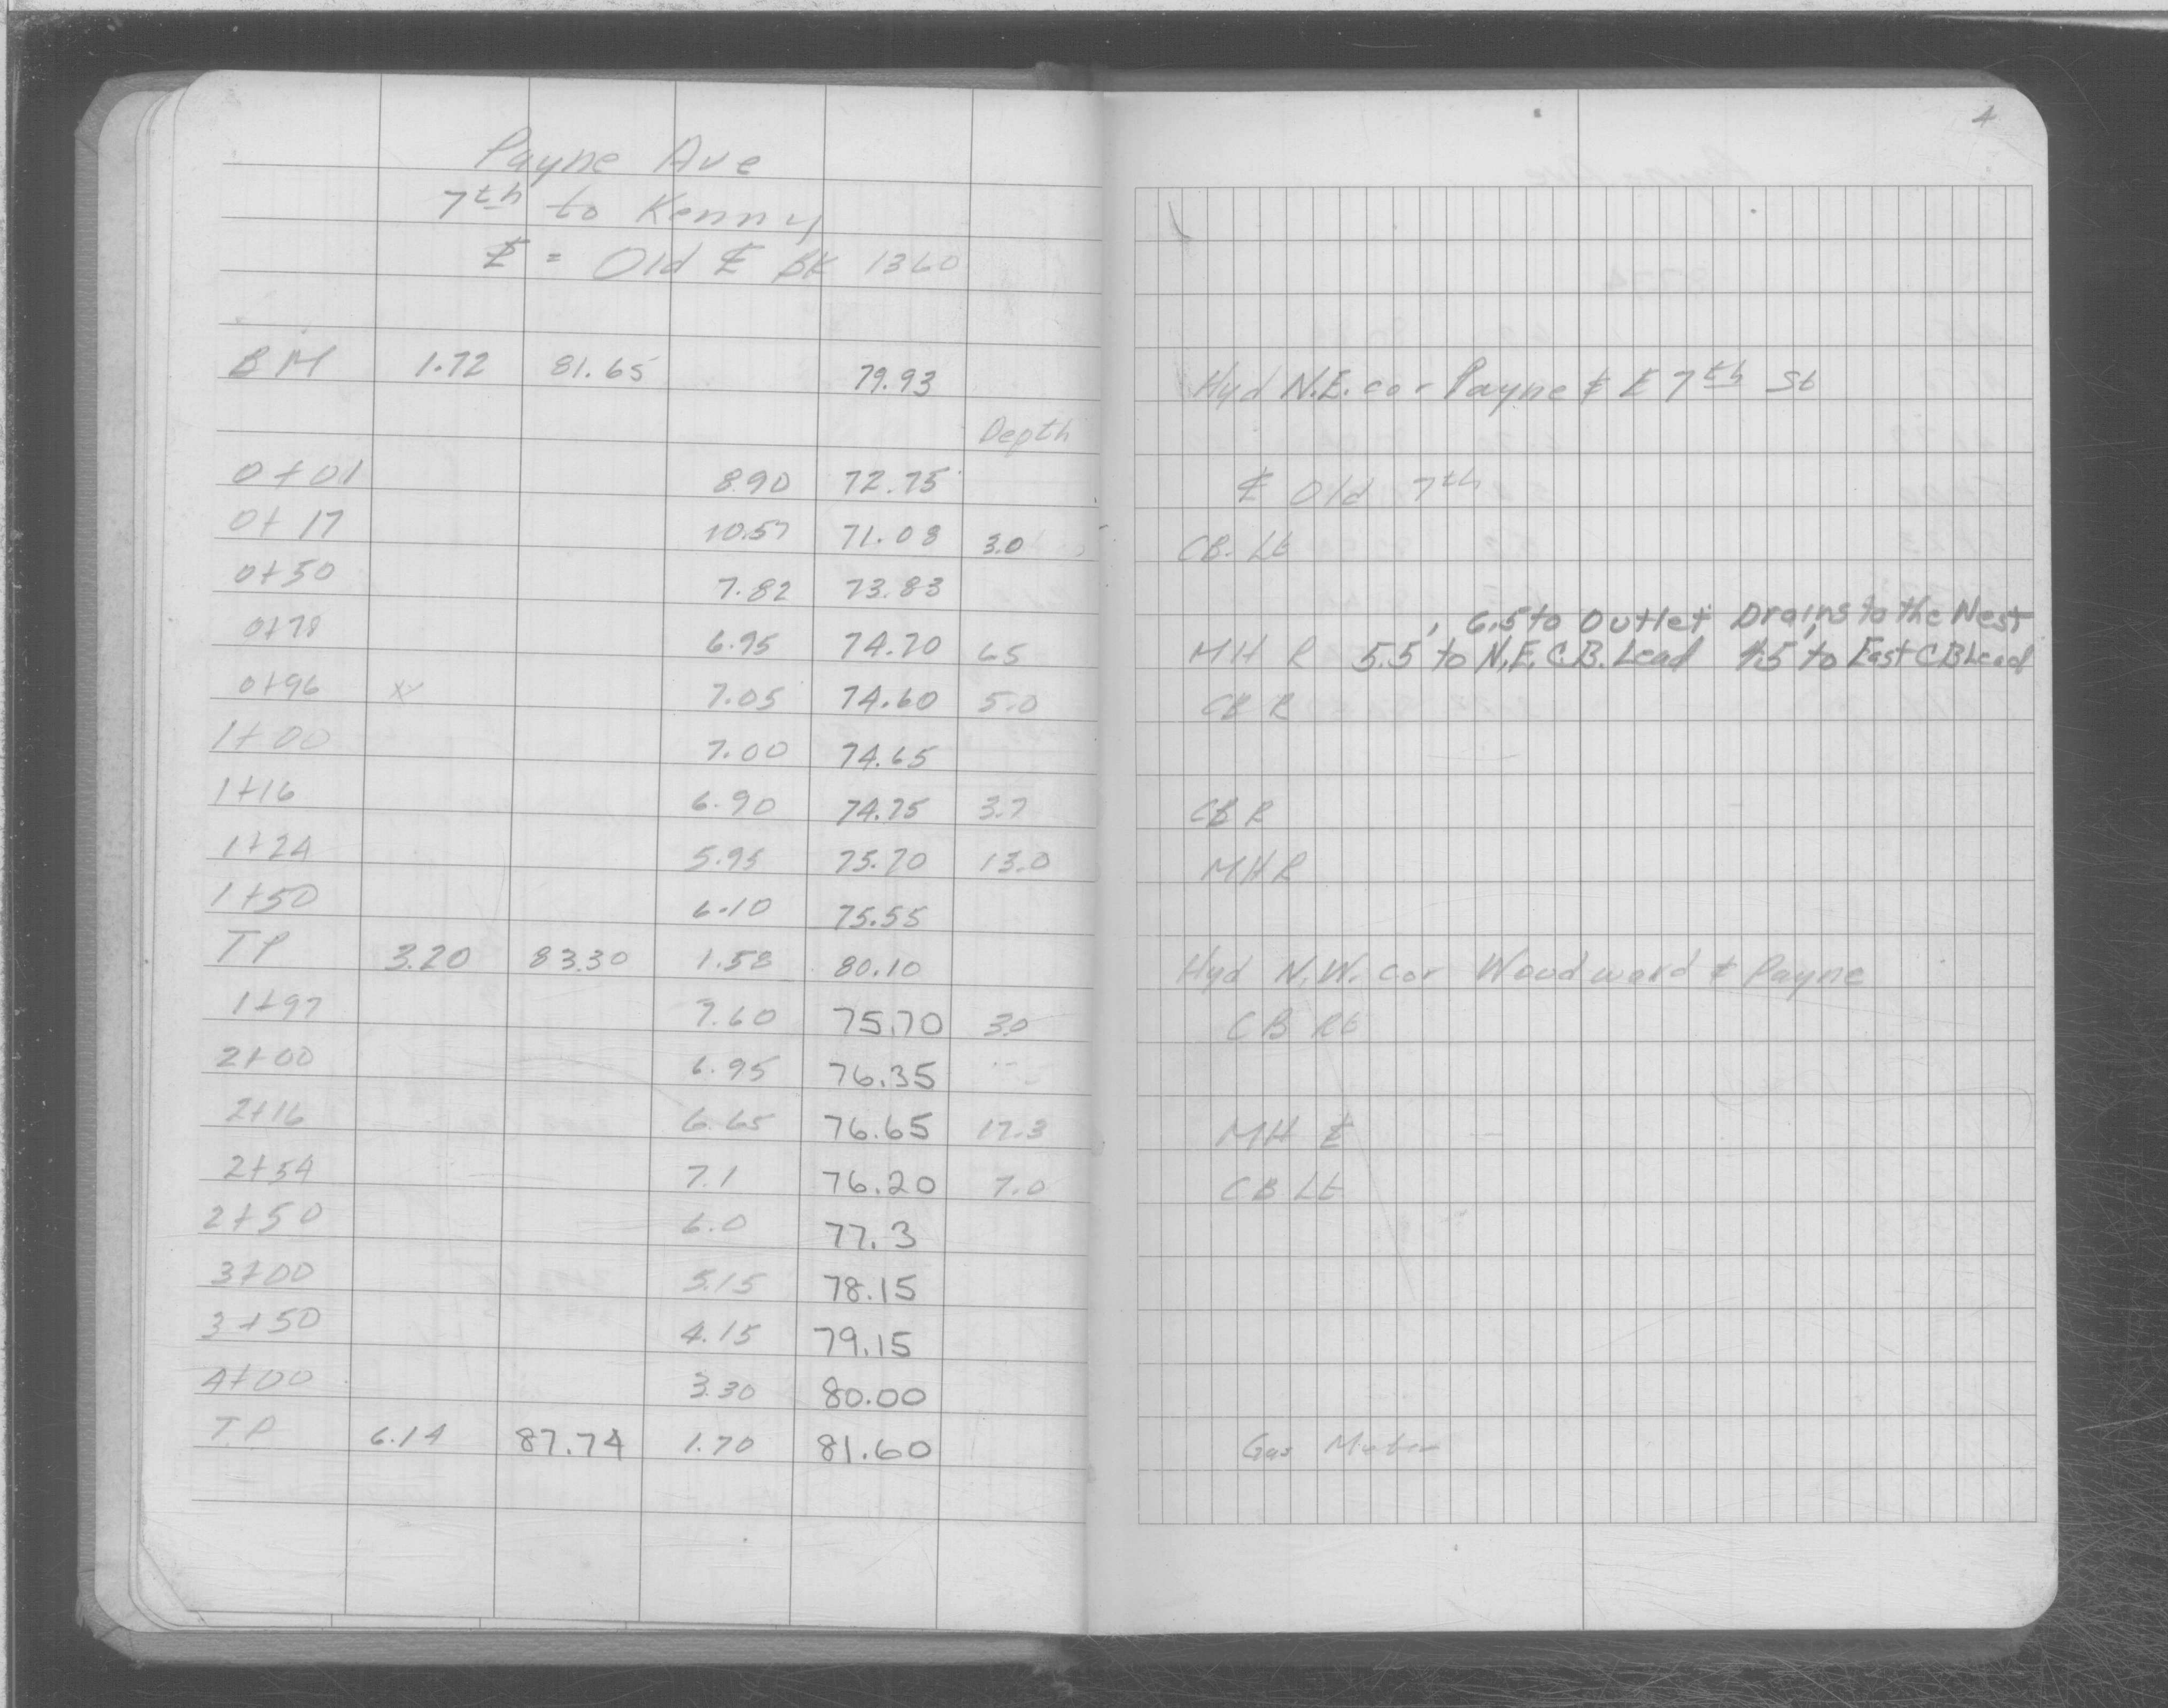 4
Payne Ave
7th to Kenny
℄ = Old ℄ BK 1360
BM 1.72 81.65 79.93 Hyd N.E. cor Payne & E 7th St
Depth
0+01 8.90 72.75 ℄ Old 7th
0+17 10.57 71.08 3.0 CB. Lt
0+50 7.82 73.83
6.5 to Outlet Drains to the West
0+78 6.95 74.70 6.5 MH R 5.5 to N.E. C.B. Lead 4.5 to East CB Lead
0+96 7.05 74.60 5.0 CB R
1+00 7.00 74.65
1+16 6.90 74.75 3.7 CB R
1+24 5.95 75.70 13.0 MH R
1+50 6.10 75.55
TP 3.20 83.30 1.58 80.10 Hyd N.W. cor Woodward & Payne
1+97 7.60 75.70 3.0 CB Rt
2+00 6.95 76.35
2+16 6.65 76.65 17.3 MH ℄
2+34 7.1 76.20 7.0 CB Lt
2+50 6.0 77.3
3+00 5.15 78.15
3+50 4.15 79.15
4+00 3.30 80.00
T.P. 6.14 87.74 1.70 81.60 Gas Meter